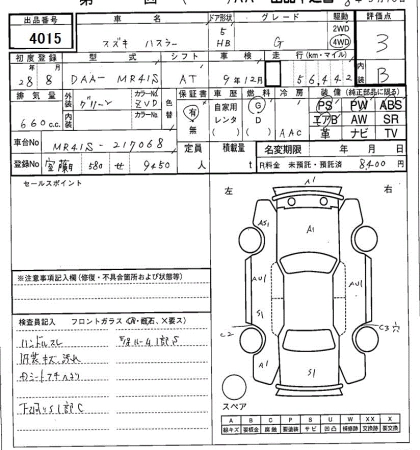 出品番号 車名 ドア形状 グレード 駆動 評価点
4015 スズキ ハスラー 5 HB G 2WD 4WD 3
初度登録 型式 シフト 車検 走行(km・マイル) 内装
28 8 DAA- MR41S AT 9年12月 56,442 B
排気量 外装 カラーNo. 色替 保証書 車歴 燃料 冷房 装備(純正部品に限る)
660cc グリーン ZVD 有 無 自家用 レンタ G D AAC PS PW ABS
エアB AW SR
革 ナビ TV
内装 カラーNo.
車台No MR41S - 217068 定員 積載量 名変期限 年 月 日
登録No 室蘭 580 せ 9450 人 t R料金 未預託・預託済 8,400円
セールスポイント
左 右
A1
A1
AS1
AU1 AU1
S1
C2 C3 穴
A1 S1 A1
※注意事項記入欄(修復・不具合箇所および状態等)
検査員記入 フロントガラス(A・飛石、×要ス)
ハンドルスレ
内装キズ、汚れ
下回りS1部C
スペア
A B C P S U W X XX
線キズ 要板金 腐蝕 要塗装 サビ 凹凸 補修跡 交換跡 要交換